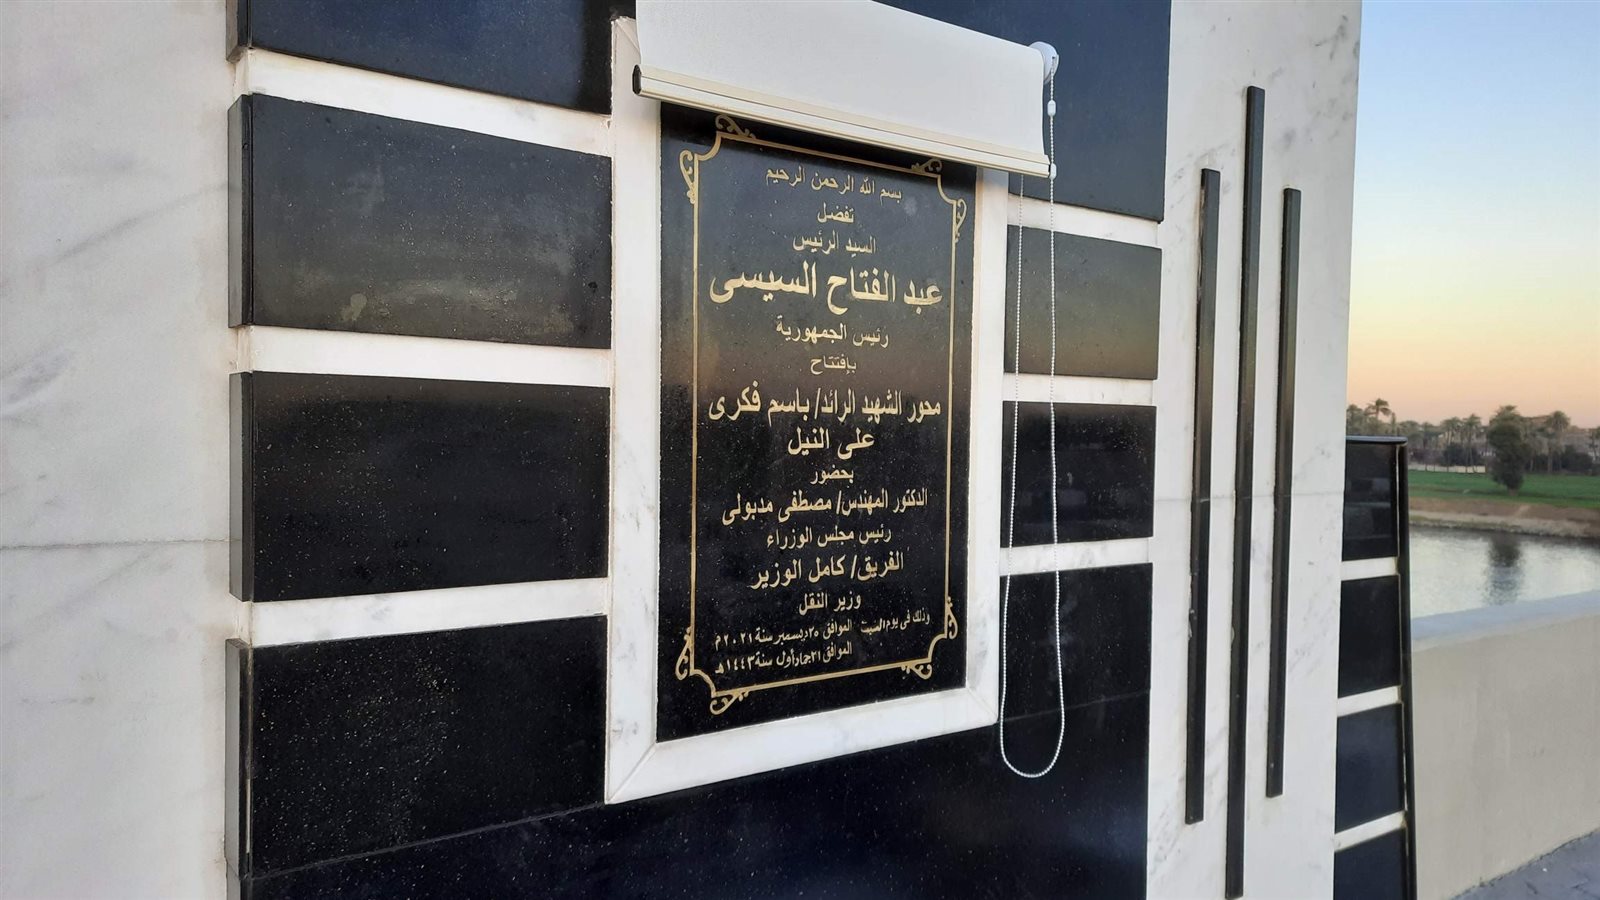 بسم الله الرحمن الرحيم
تفضل
السيد الرئيس
عبد الفتاح السيسى
رئيس الجمهورية
بإفتتاح
محور الشهيد الرائد/ باسم فكرى
على النيل
بحضور
الدكتور المهندس/ مصطفى مدبولى
رئيس مجلس الوزراء
الفريق/ كامل الوزير
وزير النقل
وذلك فى يوم السبت الموافق ٢٥ ديسمبر سنة ٢٠٢١ م
الموافق ٢١ جماد أول سنة ١٤٤٣ هـ